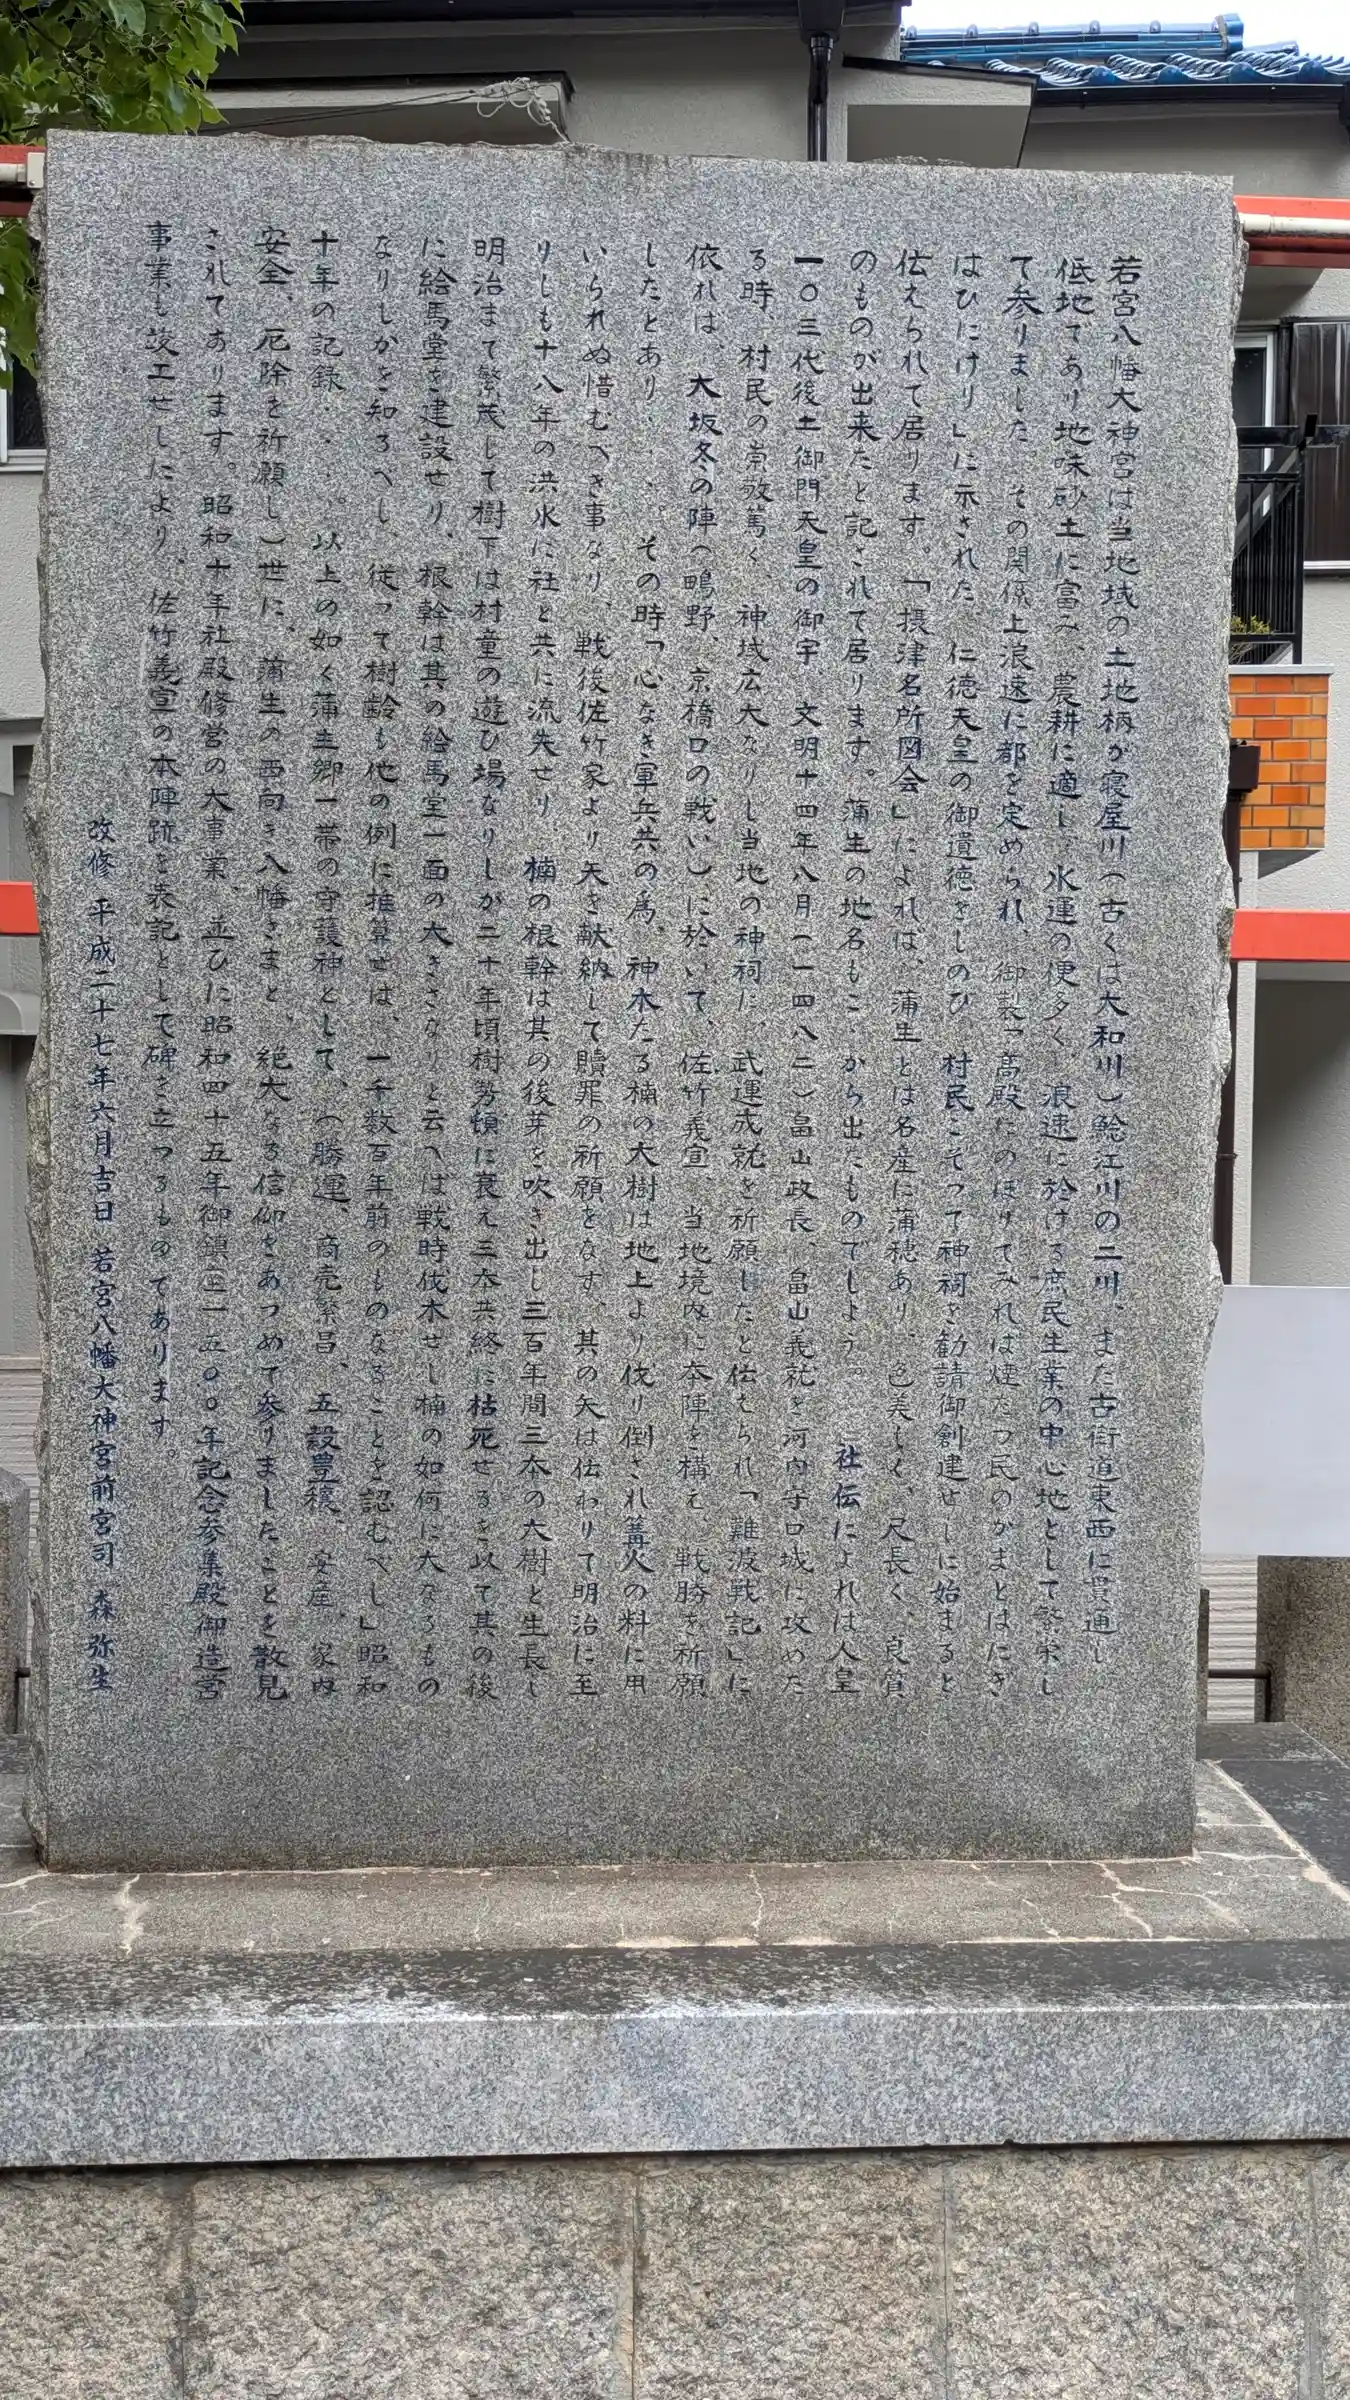 若宮八幡大神宮は当地域の土地柄が寝屋川(古くは大和川)鯰江川の二川、また古街道東西に貫通し
低地であり地味砂土に富み、農耕に適し、水運の便多く、浪速に於ける庶民生業の中心地として繁栄し
て参りました。その関係上浪速に都を定められ、御製「高殿にのぼりてみれば煙たつ民のかまどはにぎ
はひにけり」に示された、仁徳天皇の御遺徳をしのび、村民こぞって神祠を勧請御創建せしに始まると
伝えられて居ります。「摂津名所図会」によれば、蒲生とは名産に蒲穂あり、色美しく、尺長く、良質
のものが出来たと記されて居ります。蒲生の地名もこゝから出たものでしよう。 社伝によれば人皇
一〇三代後土御門天皇の御宇、文明十四年八月(一四八二)畠山政長、畠山義就を河内守口城に攻めた
る時、村民の崇敬篤く、神域広大なりし当地の神祠に、武運成就を祈願したと伝えられ「難波戦記」に
依れば、大坂冬の陣(鴫野、京橋口の戦い)に於いて、佐竹義宣、当地境内に本陣を構え、戦勝を祈願
したとあり・・・。その時「心なき軍兵共の為、神木たる楠の大樹は地上より伐り倒され篝火の料に用
いられぬ惜むべき事なり、戦後佐竹家より矢を献納して贖罪の祈願をなす、其の矢は伝わりて明治に至
りしも十八年の洪水に社と共に流失せり、楠の根幹は其の後芽を吹き出し三百年間三本の大樹と生長し
明治まで繁茂して樹下は村童の遊び場なりしが二十年頃樹勢頓に衰え三本共終に枯死せるを以て其の後
に絵馬堂を建設せり、根幹は其の絵馬堂一面の大きさなりと云へば戦時伐木せし楠の如何に大なるもの
なりしかを知るべし、従って樹齢も他の例に推算せば、一千数百年前のものなることを認むべし」昭和
十年の記録・・・。以上の如く蒲生郷一帯の守護神として、(勝運、商売繁昌、五穀豊穣、安産、家内
安全、厄除を祈願し)世に、蒲生の西向き八幡さまと、絶大なる信仰をあつめて参りましたことを散見
されてあります。昭和十年社殿修営の大事業、並びに昭和四十五年御鎮座一五〇〇年記念参集殿御造営
事業も竣工せしたより、佐竹義宣の本陣跡を表記として碑を立つるものであります。
改修 平成二十七年六月吉日 若宮八幡大神宮前宮司 森 弥生